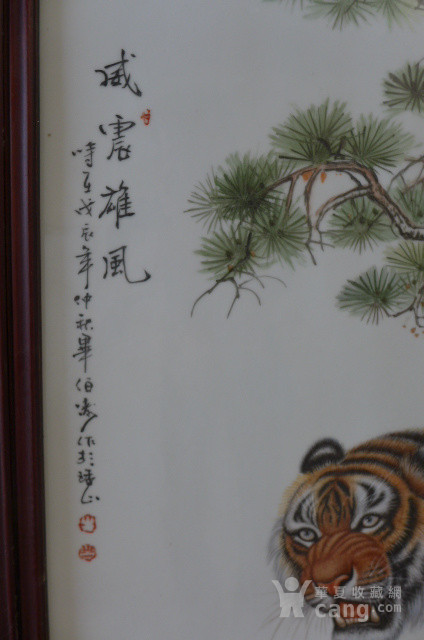 威震雄風
時在戊辰年仲秋畢伯涛作於珠山
華夏收藏網
cang.com